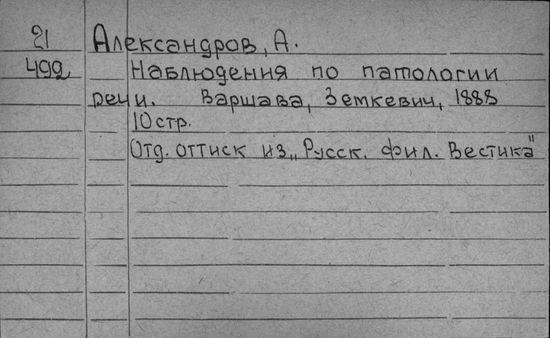 21 Александров, А.
492 Наблюдения по патологии
речи. Варшава, Земкевич, 1888
10 стр.
Отд. оттиск из „Русск. фил. Вестика"